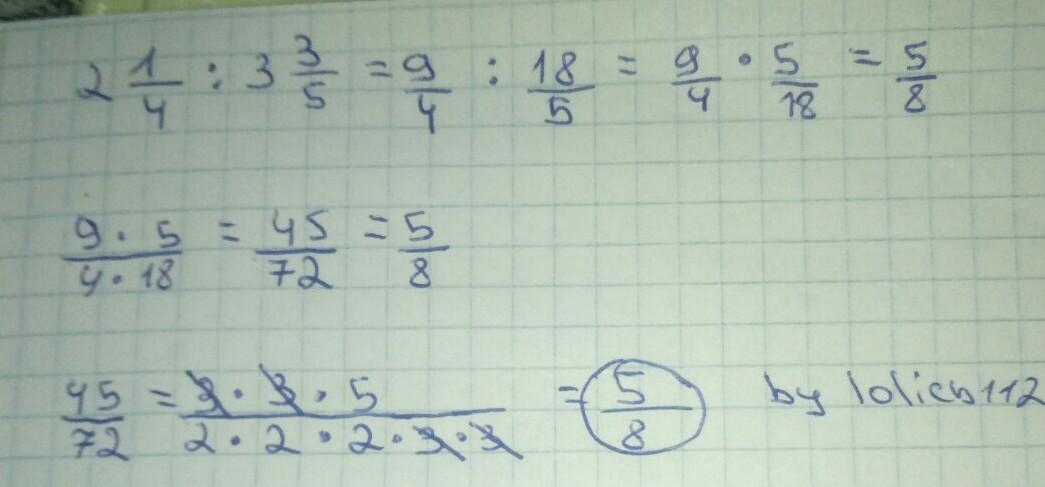 2 1/4 : 3 3/5 = 9/4 : 18/5 = 9/4 · 5/18 = 5/8
9 · 5 / 4 · 18 = 45/72 = 5/8
45/72 = 3 · 3 · 5 / 2 · 2 · 2 · 3 · 3 = 5/8 by lolich112